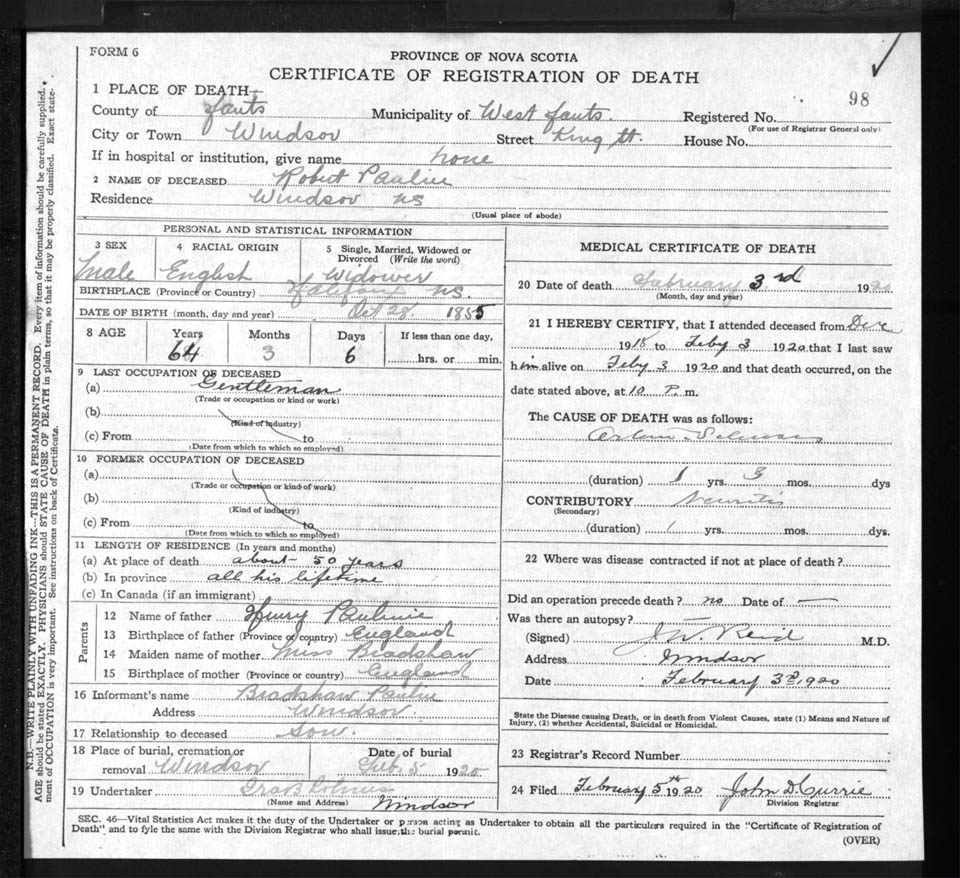 FORM 6
PROVINCE OF NOVA SCOTIA
CERTIFICATE OF REGISTRATION OF DEATH
98
1 PLACE OF DEATH—
County of Hants Municipality of West Hants. Registered No.
(For use of Registrar General only)
City or Town Windsor Street King St. House No.
If in hospital or institution, give name none
2 NAME OF DECEASED Robert Paulin
Residence Windsor NS
(Usual place of abode)
PERSONAL AND STATISTICAL INFORMATION
3 SEX 4 RACIAL ORIGIN 5 Single, Married, Widowed or Divorced (Write the word)
Male English Widower
BIRTHPLACE (Province or Country) Halifax NS.
DATE OF BIRTH (month, day and year) Oct 28 1855
8 AGE Years Months Days If less than one day,
64 3 6 hrs. or min.
9 LAST OCCUPATION OF DECEASED
(a) Gentleman
(Trade or occupation or kind or work)
(b)
(Kind of industry)
(c) From to
(Date from which to which so employed)
10 FORMER OCCUPATION OF DECEASED
(a)
(Trade or occupation or kind of work)
(b)
(Kind of industry)
(c) From to
(Date from which to which so employed)
11 LENGTH OF RESIDENCE (In years and months)
(a) At place of death about 50 years
(b) In province all his lifetime
(c) In Canada (if an immigrant)
Parents
12 Name of father Henry
13 Birthplace of father (Province or country) England
14 Maiden name of mother Miss Bradshaw
15 Birthplace of mother (Province or country) England
16 Informant's name Bradshaw Paulin
Address Windsor
17 Relationship to deceased Son.
18 Place of burial, cremation or Date of burial
removal Windsor Feb. 5 1920
19 Undertaker
(Name and Address) Windsor
MEDICAL CERTIFICATE OF DEATH
20 Date of death February 3rd 1920
(Month, day and year)
21 I HEREBY CERTIFY, that I attended deceased from Dec
1918 to Feby 3 1920 that I last saw
him alive on Feby 3 1920 and that death occurred, on the
date stated above, at 10 P. m.
The CAUSE OF DEATH was as follows:
(duration) 1 yrs. 3 mos. dys
CONTRIBUTORY Neuritis
(Secondary)
(duration) 1 yrs. mos. dys.
22 Where was disease contracted if not at place of death?
Did an operation precede death? no Date of —
Was there an autopsy? —
(Signed) J W. Reid M.D.
Address Windsor
Date February 3rd, 1920
State the Disease causing Death, or in death from Violent Causes, state (1) Means and Nature of
Injury, (2) whether Accidental, Suicidal or Homicidal.
23 Registrar's Record Number
24 Filed February 5th 1920 John D. Currie
Division Registrar
SEC. 46—Vital Statistics Act makes it the duty of the Undertaker or person acting as Undertaker to obtain all the particulars required in the "Certificate of Registration of
Death" and to fyle the same with the Division Registrar who shall issue the burial permit.
(OVER)
N.B.—WRITE PLAINLY WITH UNFADING INK—THIS IS A PERMANENT RECORD. Every item of information should be carefully supplied.
AGE should be stated EXACTLY. PHYSICIANS should STATE CAUSE OF DEATH in plain terms, so that it may be properly classified. Exact state-
ment of OCCUPATION is very important. See instructions on back of Certificate.